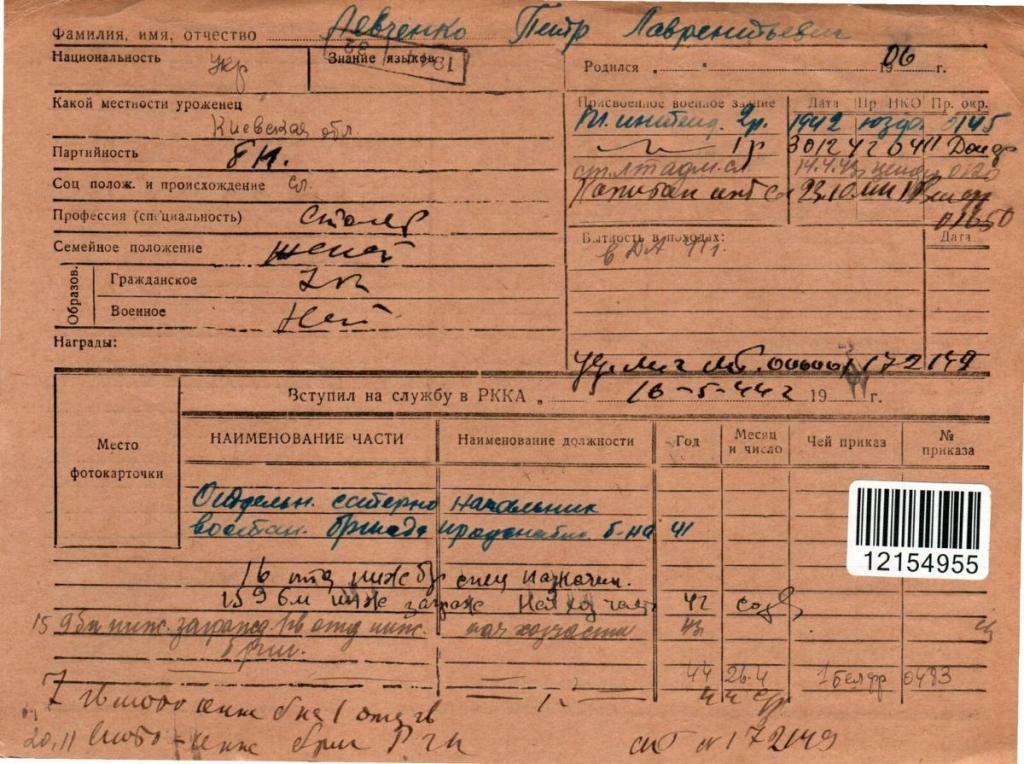 Фамилия, имя, отчество Левченко Петр Лаврентьевич
Национальность укр
Знание языков
Родился „ “ 1906 г.
Какой местности уроженец
Киевская обл
Партийность бп.
Соц полож. и происхождение сл.
Профессия (специальность) столяр
Семейное положение женат
Образов.
Гражданское 7 кл
Военное Нет
Награды:
Присвоенное военное звание Дата Пр НКО Пр. окр.
Тл. интенд. 2р. 1942 югзф. 0145
1р 30 12 42 0411 Донфр
ст. л-т адм. сл 14.4.43 центр 0120
Капитан инт сл 23.10.
01650
Бытность в походах: Дата
в ДА 41г.
уд. лич №. 172149
Вступил на службу в РККА „ 16-5-44 г 19 г.
Место
фотокарточки
НАИМЕНОВАНИЕ ЧАСТИ Наименование должности Год Месяц и число Чей приказ № приказа
Отдельн. саперно начальник
восстан. бригада продснабж б-на 41
16 отд инж бр спец назначен.
159 б-н инж заграж Нач хоз части 42
159бн инж. загражд. 1гв отд инж. нач хозчасти 43
бриг.
44 26.4 1 белфр 0493
7 гв мото инж б на 1 отд гв
20.11 мото-инж бриг РГК
172149
12154955